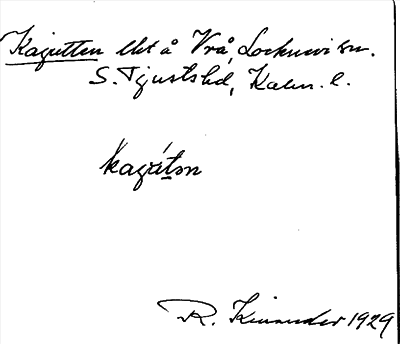 Kajutten lht å Vrå, Locknevi sn.
S. Tjusts hd, Kalm. l.
kaqátən
R. Kinander 1929